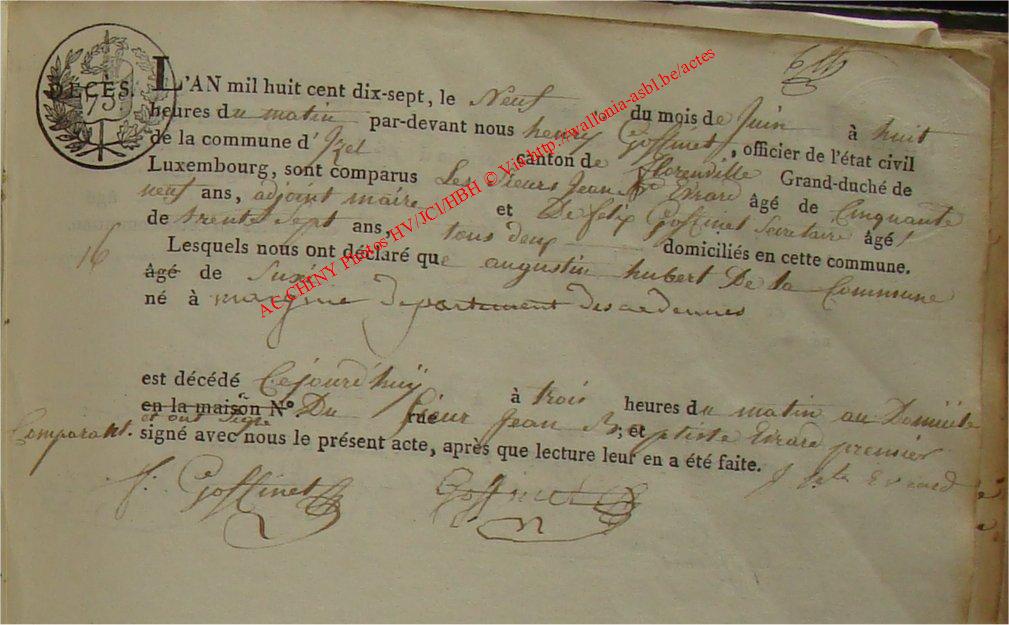 DÉCÈS.
75
L'AN mil huit cent dix-sept, le Neuf du mois de Juin à huit
heures du matin par-devant nous henry Goffinet, officier de l'état civil
de la commune d'Izel Canton de florenville Grand-duché de
Luxembourg, sont comparus Les Sieurs Jean Bte Evrard âgé de Cinquante
neuf ans, adjoint maire et De felix Goffinet Secretaire âgé
de trente Sept ans, tous deux domiciliés en cette commune.
16
Lesquels nous ont déclaré que augustin hubert De la Commune
âgé de
né à departement des ardennes
est décédé Cejourd'huÿ à trois heures du matin au Domicile
en la maison N° Du rue Sieur Jean Baptiste ; et Evrard premier
Comparant. et ont Signé
signé avec nous le présent acte, après que lecture leur en a été faite.
f. Goffinet Goffinet J Bte Evrard
ACCHINY Photos HV/JCl/HBH © Via http://wallonia-asbl.be/actes